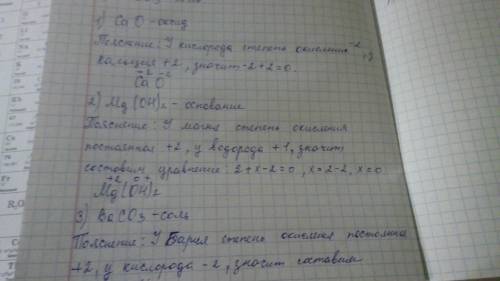 1) CaO - оксид
Пояснение: У кислорода степень окисления -2, у
кальция +2, значит -2+2=0.
+2 -2
CaO
2) Mg(OH)₂ - основание
Пояснение: У магния степень окисления
постоянная +2, у водорода +1, значит
составим уравнение: 2+x-2=0, x=2-2, x=0.
+2 0 +
Mg(OH)₂
3) BaCO3 - соль
Пояснение: У Бария степень окисления постоянна
+2, у кислорода -2, значит составим